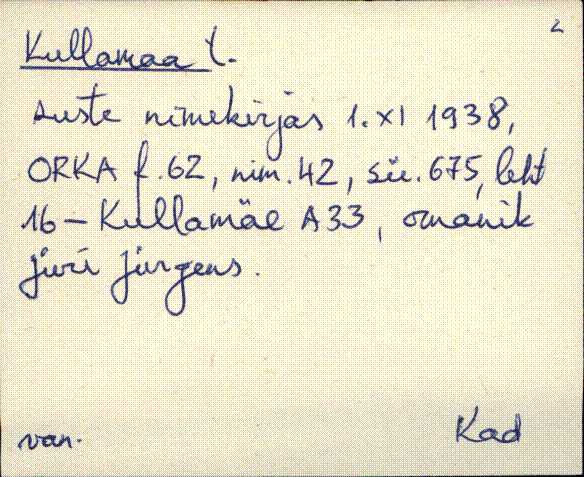 2
Kullamaa t.
suste nimekirjas 1.XI 1938,
ORKA f.62, nim.42, sü.675, leht
16 – Kullamäe A33, omanik
Jüri Jürgens.
van. Kad